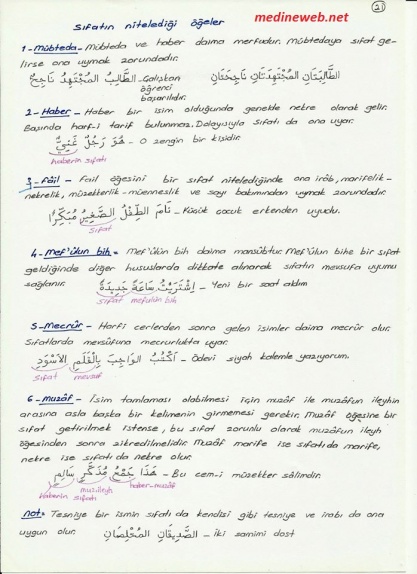 21
Sıfatın nitelediği öğeler
medineweb.net
1-Mübteda- Mübteda ve haber daima merfudur. Mübtedaya sıfat ge-
lirse ona uymak zorundadır.
الطَّالِبُ المُجْتَهِدُ نَاجِحٌ - Çalışkan öğrenci başarılıdır. الطَّالِبَتَانِ المُجْتَهِدَتَانِ نَاجِحَتَانِ
2-Haber- Haber bir isim olduğunda genelde nekre olarak gelir.
Başında harf-i tarif bulunmaz. Dolayısıyla sıfatı da ona uyar.
هُوَ رَجُلٌ غَنِيٌّ - O zengin bir kişidir.
haberin sıfatı
3-Fâil- Fail öğesini bir sıfat nitelediğinde ona irâb, marifelik-
nekrelik, müzekkerlik-müenneslik ve sayı bakımından uymak zorundadır.
نَامَ الطِّفْلُ الصَّغِيرُ مُبَكِّرًا - Küçük çocuk erkenden uyudu.
sıfat
4-Mef'ûlun bih= Mef'ûlün bih daima mansûbtur. Mef'ûlun bihe bir sıfat
geldiğinde diğer hususlarda dikkate alınarak sıfatın mevsufa uyumu
sağlanır.
اِشْتَرَيْتُ سَاعَةً جَدِيدَةً - Yeni bir saat aldım
sıfat mefulün bih
5-Mecrûr- Harfi cerlerden sonra gelen isimler daima mecrûr olur.
Sıfatlarda mevsûfuna mecrurlukta uyar.
أَكْتُبُ الوَاجِبَ بِالْقَلَمِ الأَسْوَدِ - Ödevi siyah kalemle yazıyorum.
sıfat mevsuf
6-muzâf- İsim tamlaması olabilmesi için muzâf ile muzâfun ileyhin
arasına asla başka bir kelimenin girmemesi gerekir. Muzâf öğesine bir
sıfat getirilmek istense, bu sıfat zorunlu olarak muzâfun ileyh
öğesinden sonra zikredilmelidir. Muzâf marife ise sıfatı da marife,
nekre ise sıfatı da nekre olur.
هَذَا جَمْعُ مُذَكَّرٍ سَالِمٌ - Bu cem-i müzekker sâlimdir.
haberin sıfatı muz.ileyh haber-muzâf
not= Tesniye bir ismin sıfatı da kendisi gibi tesniye ve irabı da ona
uygun olur. الصَّدِيقَانِ المُخْلِصَانِ - İki samimi dost